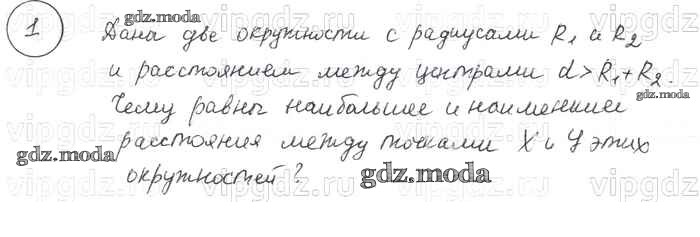 1 Дана две окружности с радиусами R1 и R2
и расстоянием между центрами d > R1 + R2.
Чему равны наибольшее и наименьшие
расстояния между точками X и Y этих
окружностей?
gdz.moda
gdz.moda
gdz.moda
gdz.moda
vipgdz.ru vipgdz.ru vipgdz.ru